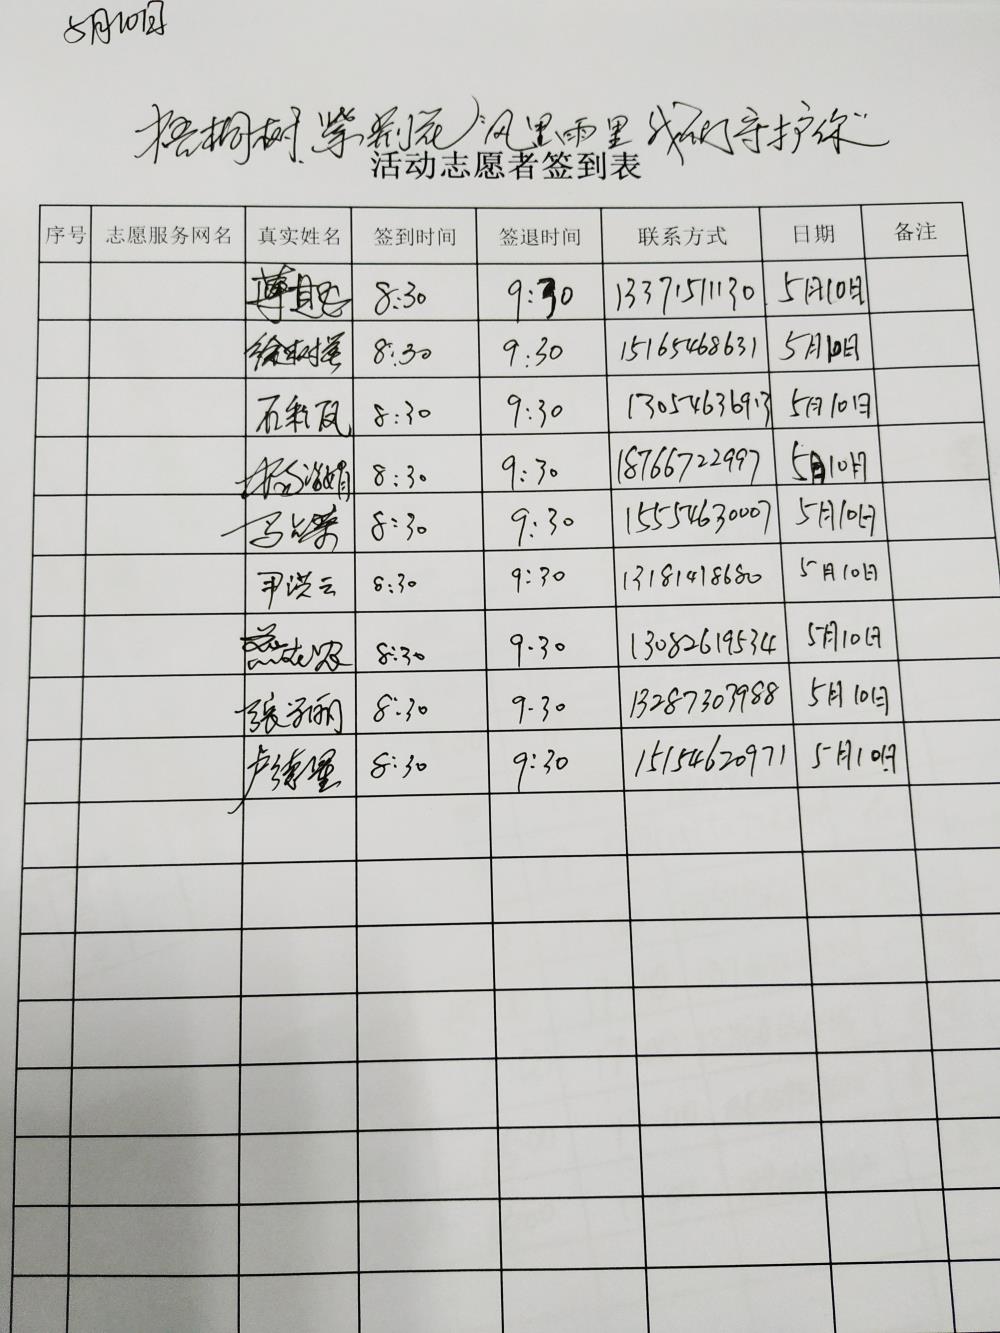 5月10日
梧桐树.紫荆花"风里雨里 我们守护你"
活动志愿者签到表
序号 志愿服务网名 真实姓名 签到时间 签退时间 联系方式 日期 备注
8:30 9:30 13371511130 5月10日
徐树英 8:30 9:30 15165468631 5月10日
石彩凤 8:30 9:30 13054636913 5月10日
杨海娟 8:30 9:30 18766722997 5月10日
马兰荣 8:30 9:30 15554630007 5月10日
尹洪云 8:30 9:30 13181418680 5月10日
8:30 9.30 13082619534 5月10日
张子丽 8:30 9.30 13287303988 5月10日
8:30 9:30 15154620971 5月10日